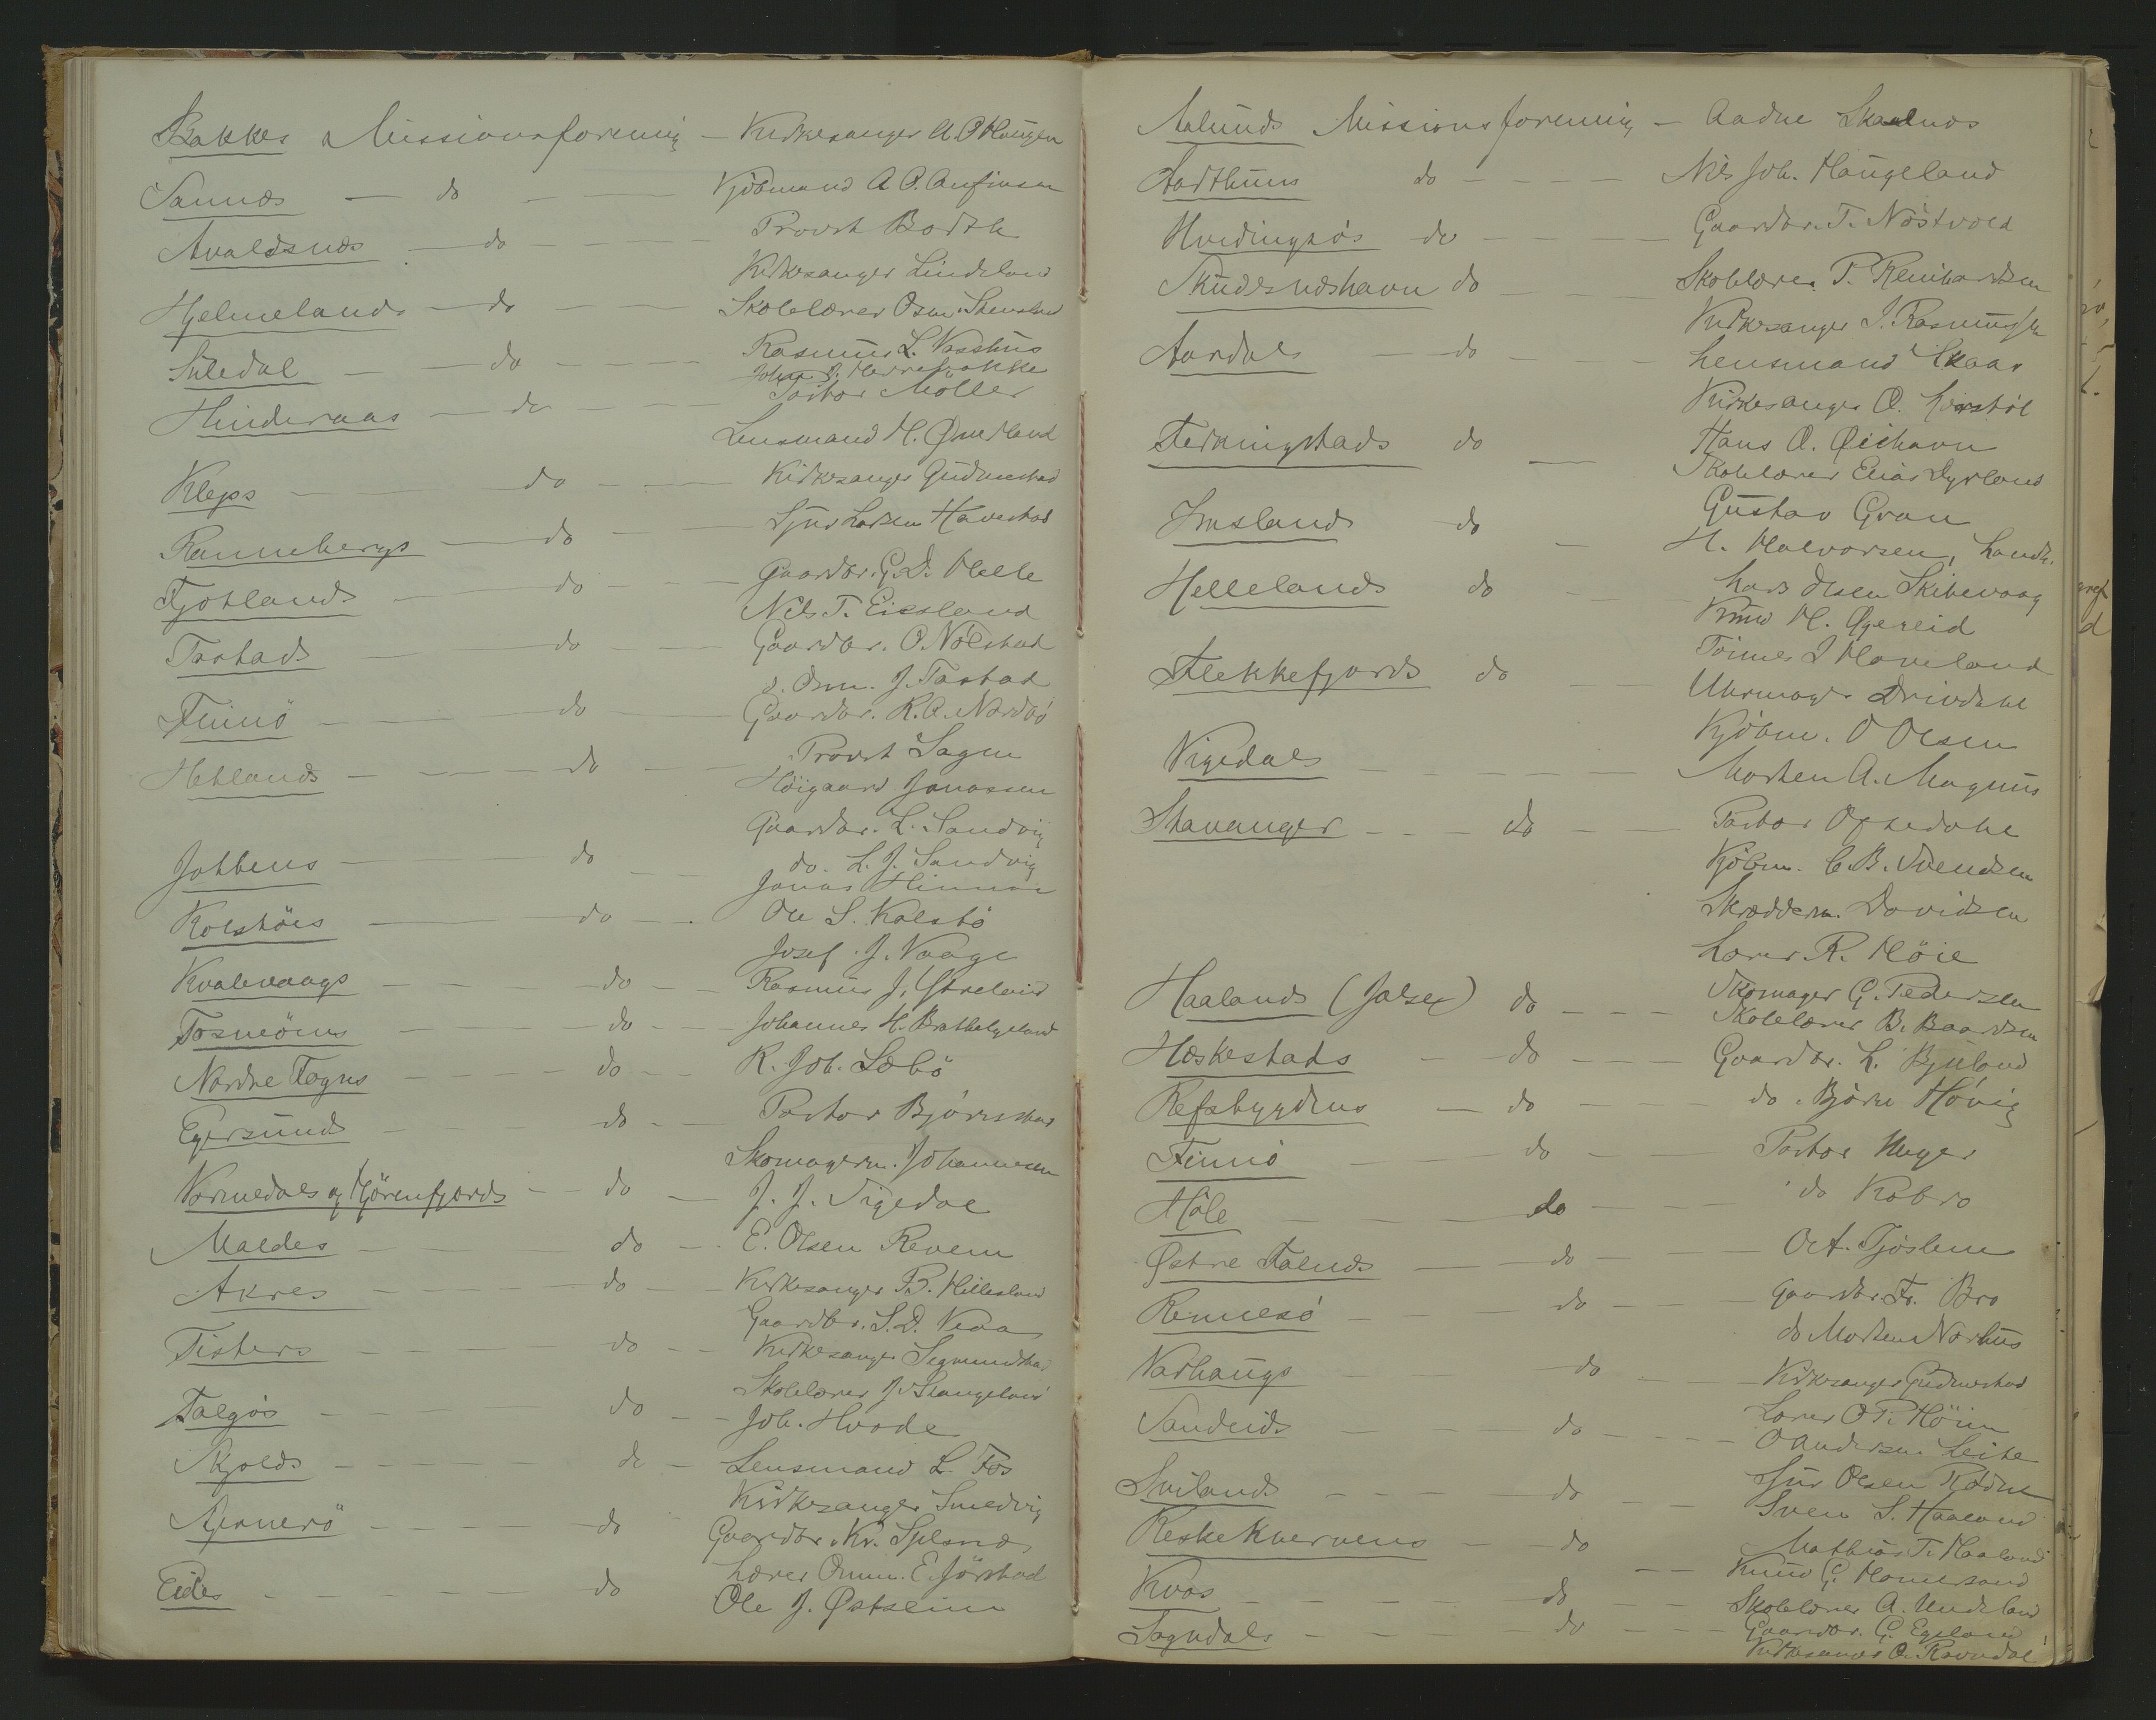 Bakkes Missionsforening – Kirkesanger A. P. Haugen
Sannes – do – Kjöbmand A. P. Anfinsen
Avaldsnes – do – Provst Bodth
Kirkesanger Lindeland
Hjelmelands – do – Skolelærer Osm. Stensland
Suledal – do – Rasmus L. Vasshus
Johan J. Herrefokke
Hinderaas – do – Pastor Möller
Lensmand H. Qmerland
Kleps – do – Kirkesanger Gudmestad
Rannebergs – do – Sjur Larsen Havestad
Fjotlands – do – Gaardbr. G. D. Helle
Nils T. Eiesland
Tastads – do – Gaardbr. O. Nölstad
s. Osm. J. Tastad
Finnö – do – Gaardbr. R. O. Nordbö
Hetlands – do – Provst Sagen
Höigaard Jonassen
Gaardbr. L. Sandvig
Jobbens – do – do. L. J. Sandvig
Jonas Hinna
Kolstöes – do – Ole S. Kolstö
Josef J. Vaage
Kvalevaags – do – Rasmus J. Ytreland
Fosneöens – do – Johannes H. Brathelgeland
Nordre Fogns – do – R. Joh. Sæbö
Egersunds – do – Pastor Björnstad
Skomagerm. Johannesen
Vormedals og Hjörenfjords – do – J. J. Tigedal
Maldes – do – E. Olsen Revem
Akres – do – Kirkesanger B. Hillesland
Gaardbr. S. D. Vea
Tisters – do – Kirkesanger Segmundstad
Skolelærer J. Stangeland
Talgös – do – Joh. Hvode
Skjolds – do – Lensmand L. Fos
Kirkesanger Smedvig
Gjernerö – do – Gaardbr. Kr. Spland
Lærer Omm. E. Jörstad
Eides – do – Ole J. Østreim
Aalunds Missionsforening – Aadne Skaalnes
Aarthuns do – Nils Joh. Haugeland
Hvidingsös do – Gaardbr. T. Nöstvold
Skudesneshavn do – Skolelærer P. Reinhardtsen
Kirkesanger J. Rasmussen
Aardals – do – Lensmand Skaar
Kirkesanger O. Lirstöl
Ferkingstads do Hans O. Øiehavn
Skolelærer Elias Dyrland
Imslands do Gustav Gran
H. Halvorsen, Landh.
Hellelands do Lars Olsen Skibevaag
Knud H. Øgereid
Flekkefjords do Tönnes J Haveland
Uhrmager Drivdahl
Kjöbm. O Olsen
Vigedals – Morten A. Magnus
Stavanger – do – Pastor Oftedahl
Kjöbm. C. B. Svendsen
Skrædderm. Davidsen
Lærer R. Höie
Haalands (Jæder) do – Skomager G. Pedersen
Skolelærer B. Baardsen
Heskestads – do – Gaardbr. L. Bjuland
Refsbygdens – do – do. Björn Hövig
Finnö – do – Pastor Unger
Höle – do – do Kobro
Østre Talnds – do – Oct. Tjöslem
Rennesö – do – Gaardbr. Fr. Bro
do Morten Norhus
Varhaugs – do – Kirkesanger Gudmestad
Sandeids – do – Lærer O P. Höim
O Andersen Leite
Svilands – do – Sjur Olsen Rödne
Sven S. Haaland
Reskekvervens – do Mathias T. Haaland
Knud G. Homersand
Kvas – do – Skolelærer A. Undeland
Sogndals – do – Gaardbr. G. Egeland
Kirkesanger O. Rovndal